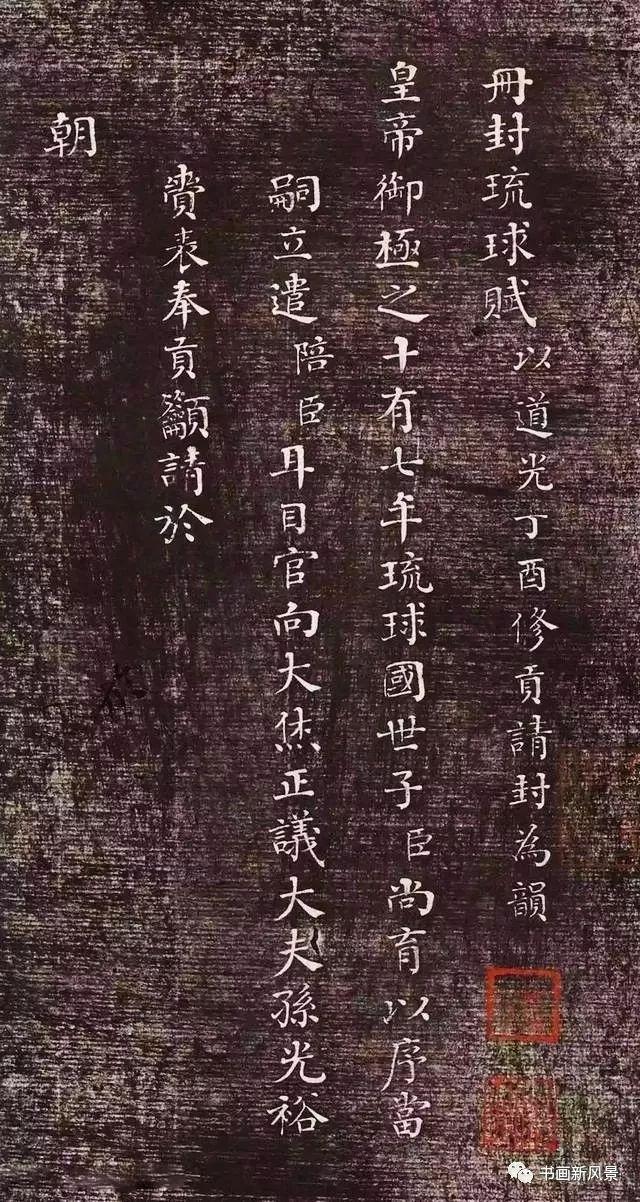 冊封琉球賦 以道光丁酉修貢請封為韻
皇帝御極之十有七年琉球國世子臣尚育以序當
嗣立遣陪臣耳目官向大烋正議大夫孫光裕
賫表奉貢籲請於
朝
书画新风景